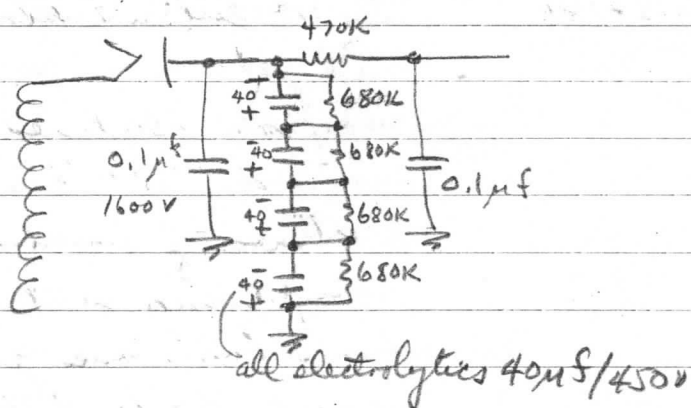 470K
40
680K
+
0.1μf
1600V
40
680K
+
0.1μf
40
680K
+
40
680K
+
all electrolytics 40μf/450V